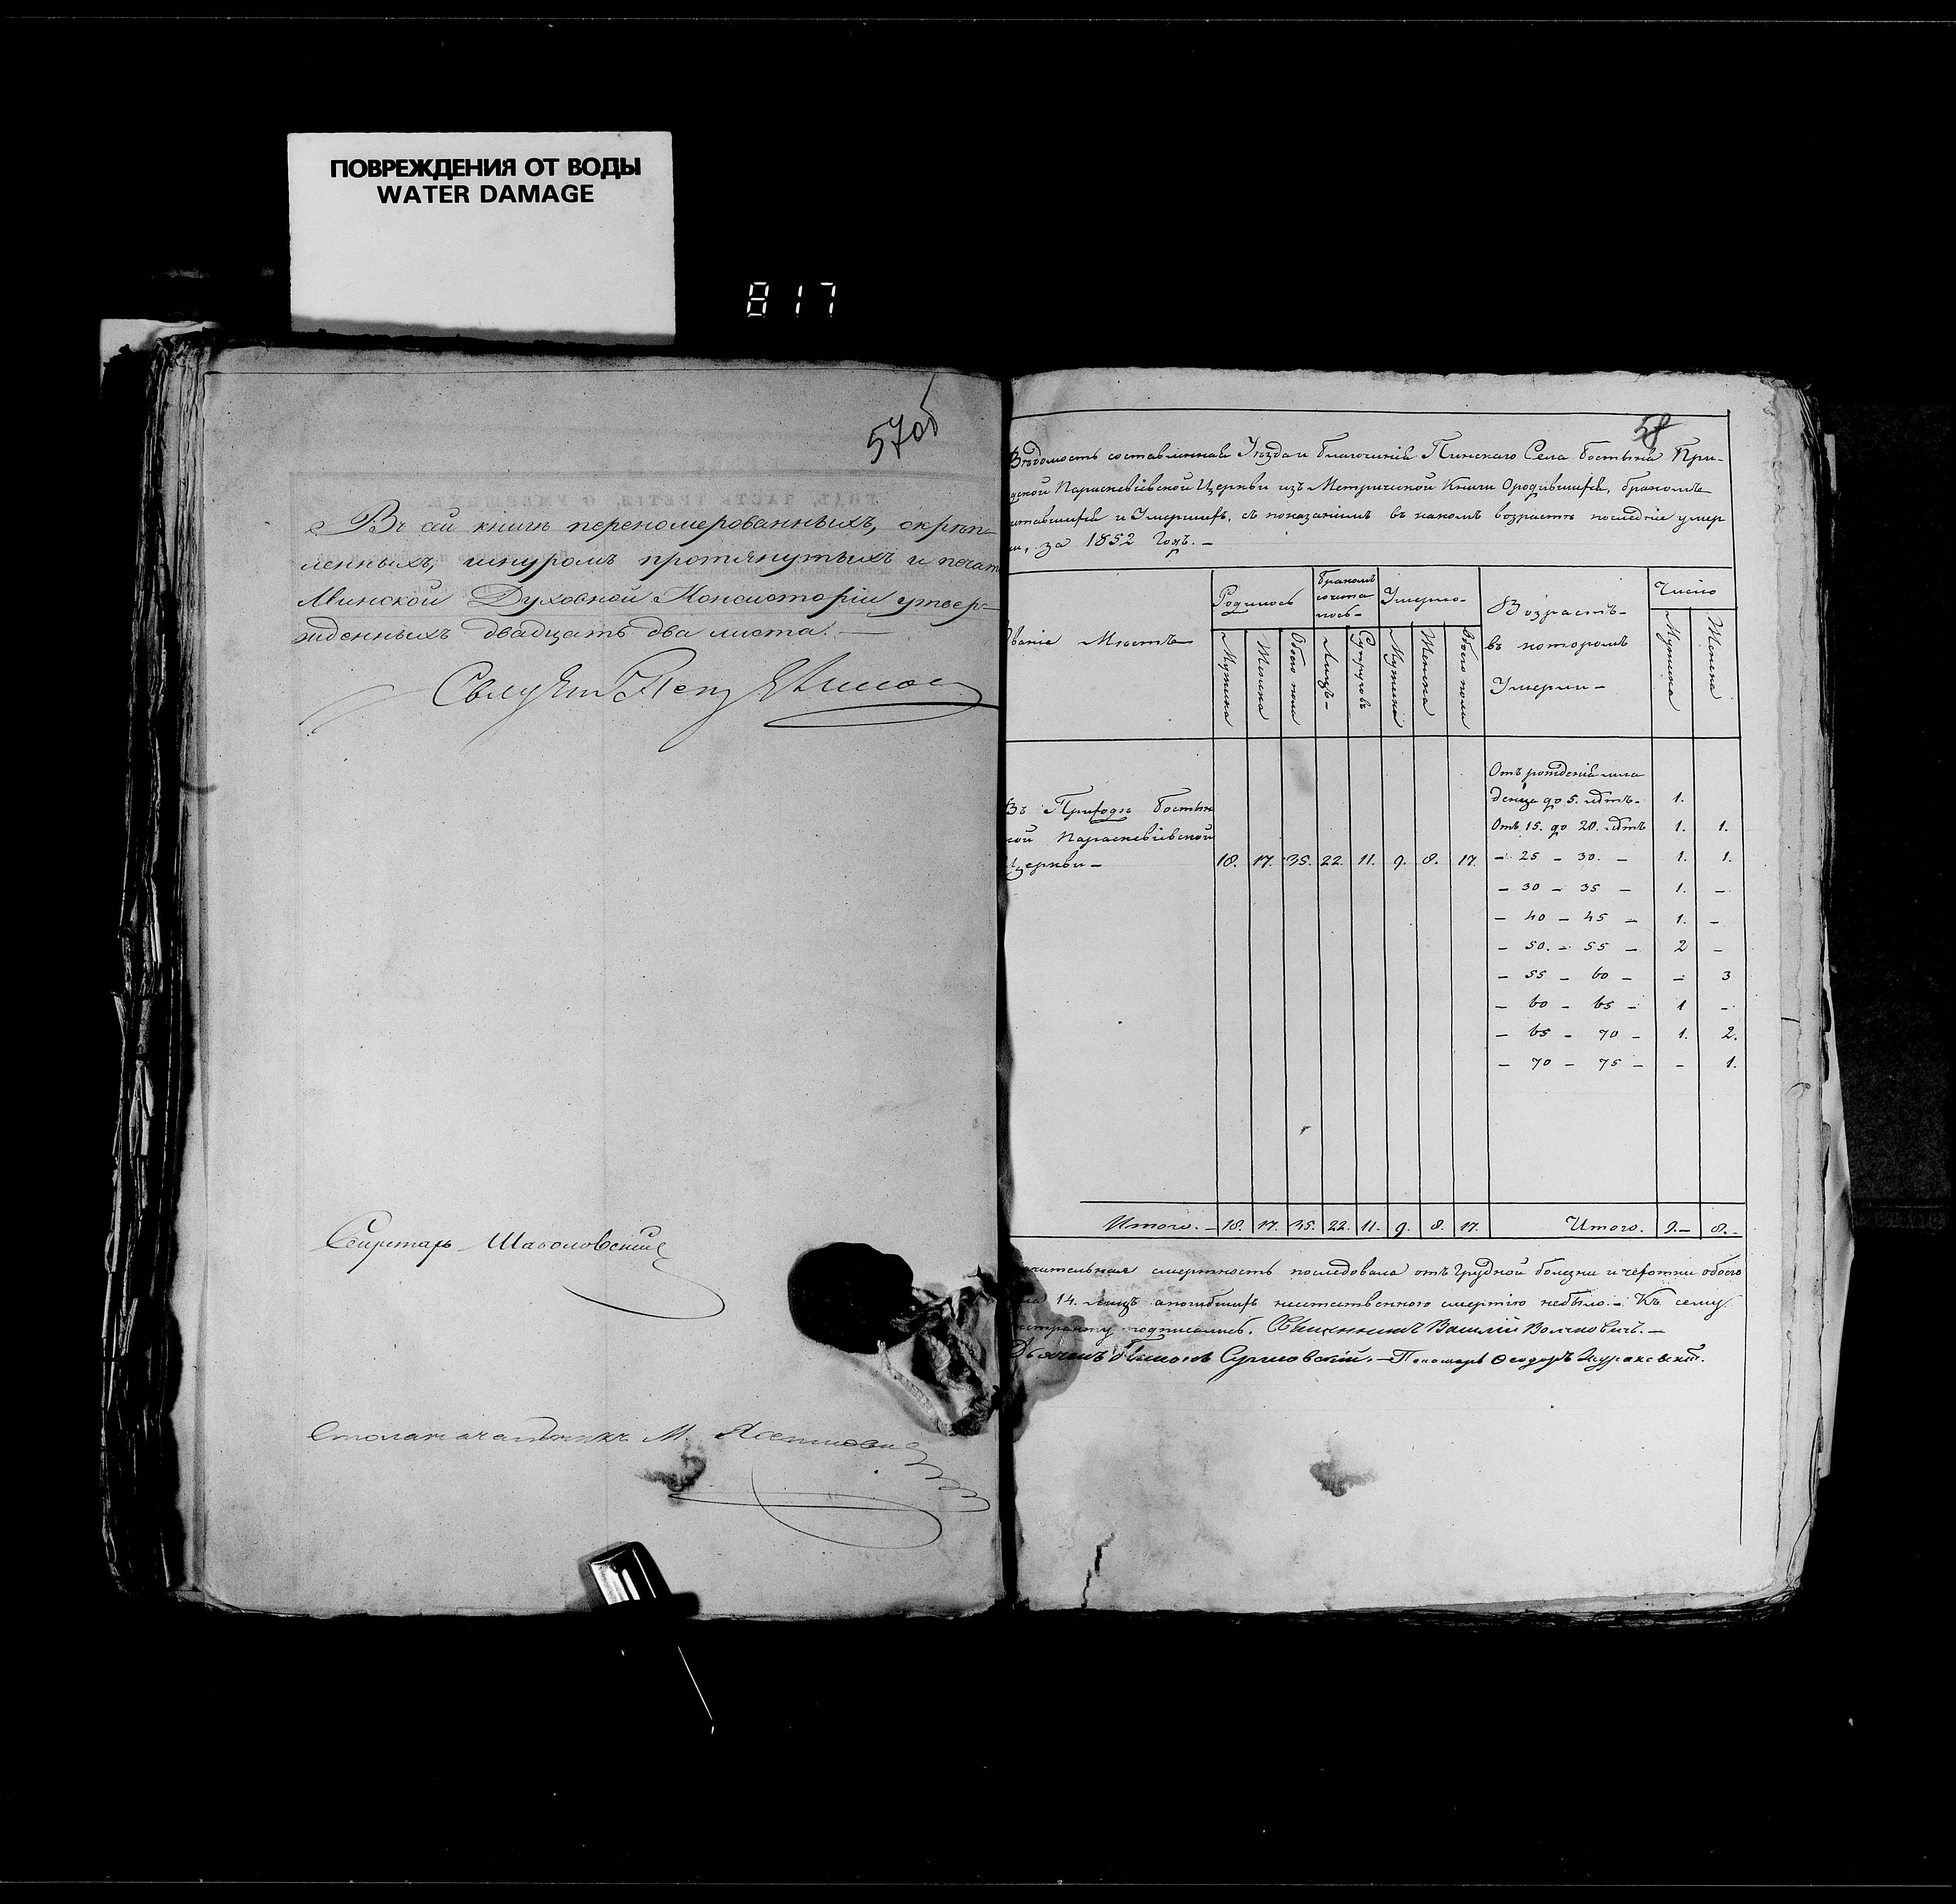 ПОВРЕЖДЕНИЯ ОТ ВОДЫ
WATER DAMAGE
817
57об
Въ сей книгѣ перенумерованныхъ, скрѣп-
ленныхъ, шнуромъ протянутыхъ и печат
Минской Духовной Консисторіи утвер-
жденныхъ двадцать два листа. —
Секретарь
Столоначальникъ М.
58
Вѣдомость составленная Уѣзда и благочинія Пинскаго Села Бостыня При-
дской Параскевіевской Церкви изъ Метрической Книги О родившихся, бракомъ
четавшихся и Умершихъ, съ показаніемъ въ какомъ возрастѣ послѣдніе умер
ли, за 1852 Годъ. —
званіе Мѣстъ
Родилось
Бракомъ сочета лось —
Умерло —
Возрастъ — въ которомъ Умерли —
Число
Мужска
Женска
Обоего пола
Лицъ —
Супруговъ
Мужска
Женска
Обоего пола
Мужска
Женска
Отъ рожденія мла
денца до 5. лѣтъ — 1.
Отъ 15. до 20. лѣтъ 1. 1.
Въ Приходѣ Бостын
кой Параскевіевской
Церкви — 18. 17. 35. 22. 11. 9. 8. 17.
— 25 — 30. — 1. 1.
— 30 — 35 — 1. —
— 40 — 45 — 1. —
— 50. — 55 — 2 —
— 55 — 60 — — 3
— 60 — 65 — 1 —
— 65 — 70 — 1. 2.
— 70 — 75 — — 1.
Итого. — 18. 17. 35. 22. 11. 9. 8. 17. Итого. 9. — 8. —
чительная смертность послѣдовала отъ Грудной болезни и чехотки обоего
14. лицъ а погибшихъ неестественною смертію небыло. — Къ сему
экстракту подписались. Священникъ Василій Волковичъ. —
Дьячекъ Сулковскій. — Пономарь Ѳеодоръ